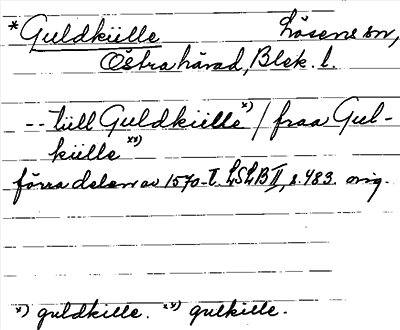 *Guldkülle Lösens sn,
Östra härad, Blek. l.
-- till Guldkülle x) / fraa Gul-
külle xx)
förra delen av 1570-t. LSLB II, s. 483. orig.
x) guldkille. xx) gulkille.